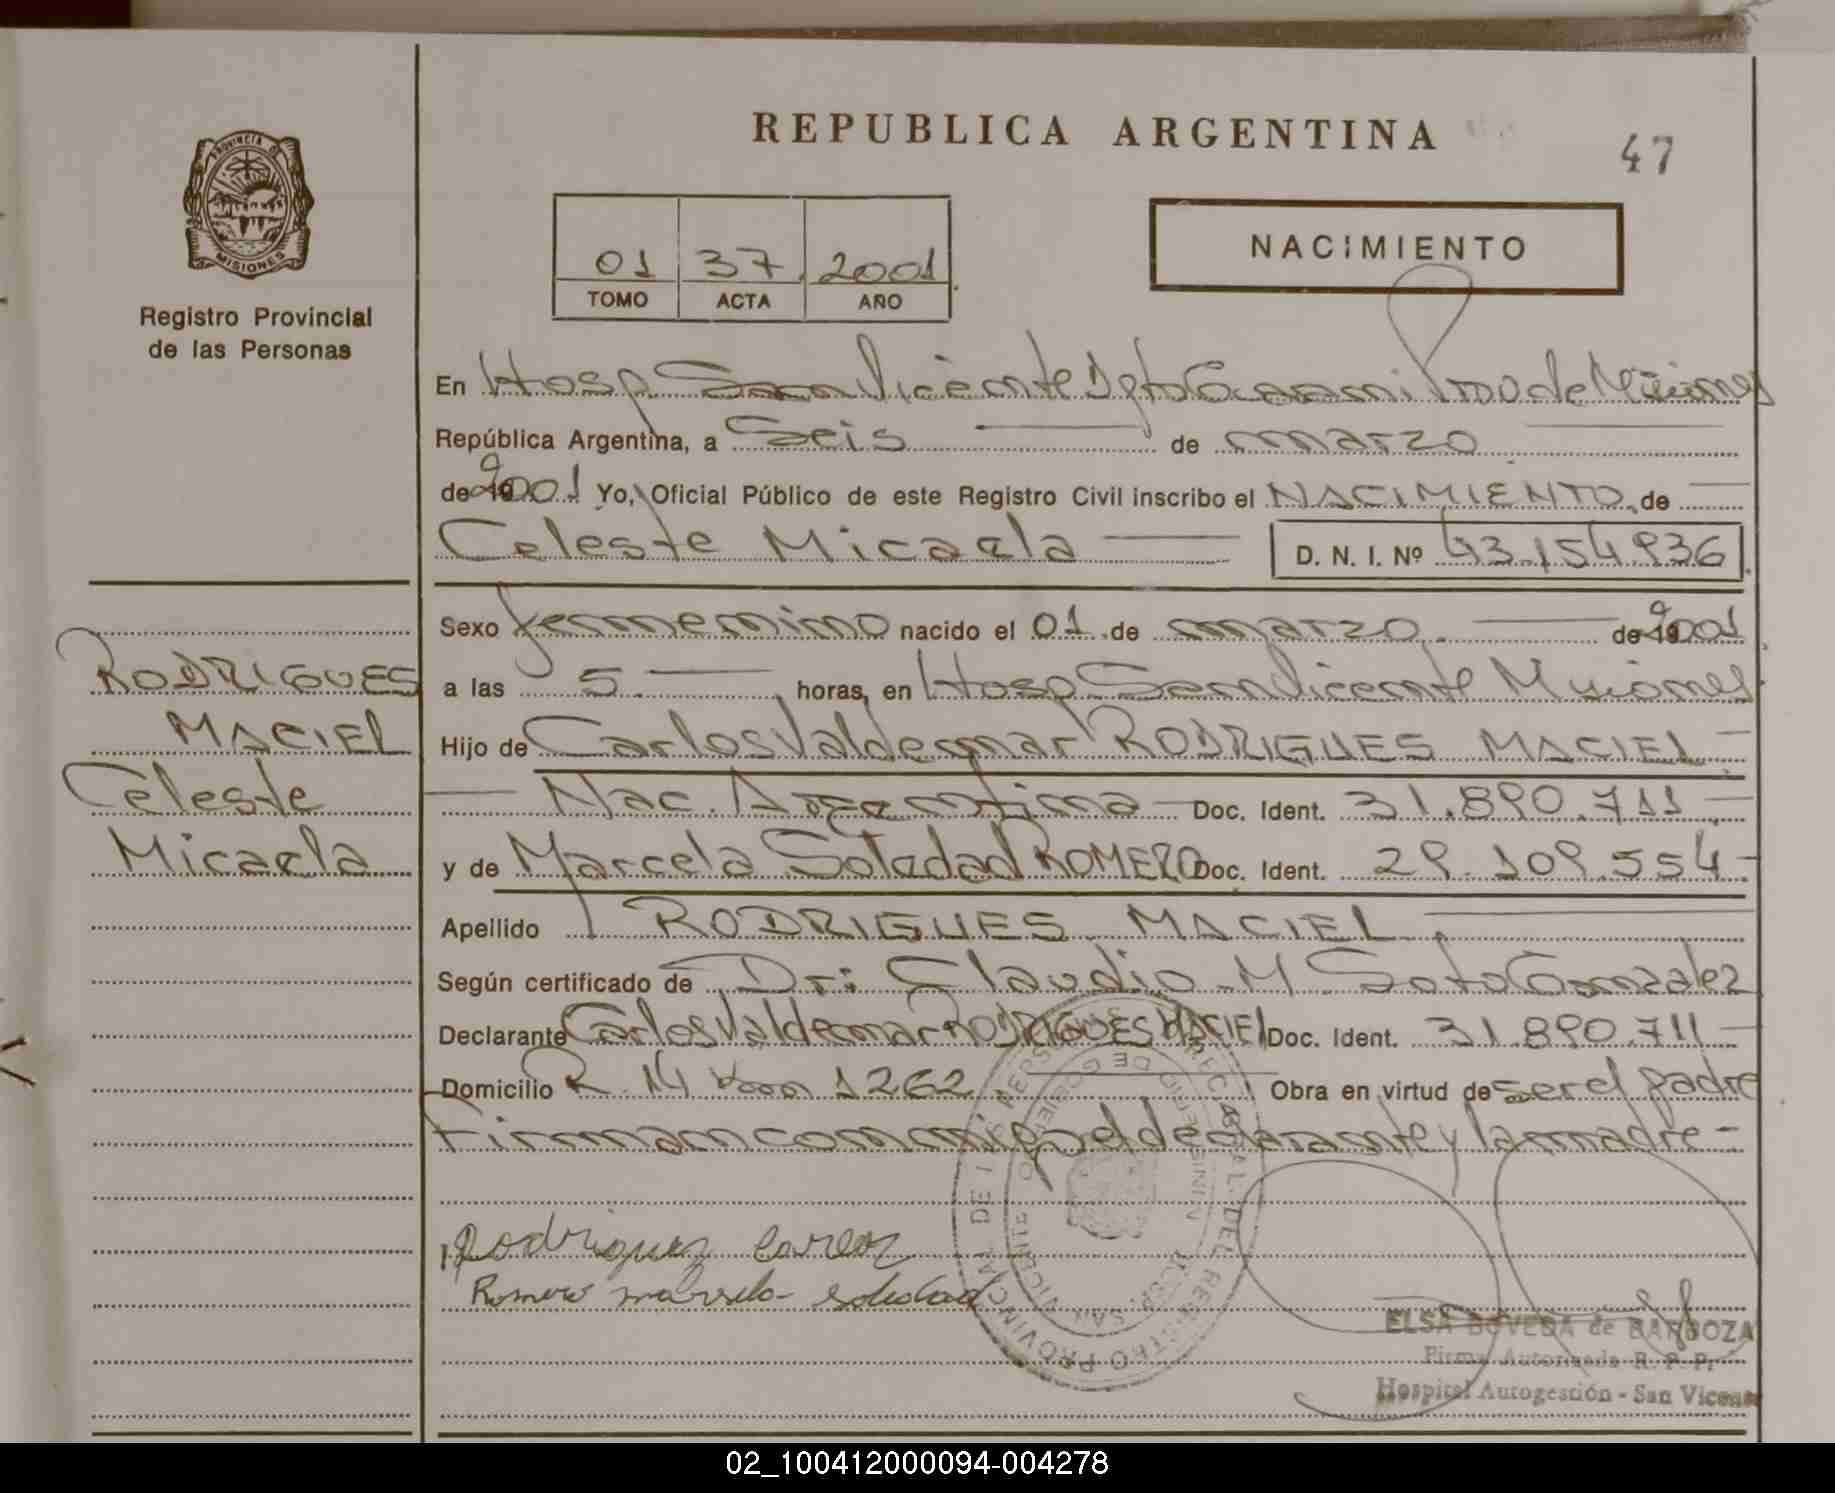 REPUBLICA ARGENTINA
47
PROVINCIA DE
MISIONES
Registro Provincial
de las Personas
01 37 2001
TOMO ACTA AÑO
NACIMIENTO
En Hosp. San Vicente Dpto Guarani Prov de Misiones
República Argentina, a Seis de marzo
de 2001 Yo, Oficial Público de este Registro Civil inscribo el NACIMIENTO de
Celeste Micaela D. N. I. Nº 43.154.936
Sexo femenino nacido el 01 de marzo de 2001
a las 5 horas, en Hosp San Vicente Misiones
Hijo de Carlos Valdemar RODRIGUES MACIEL
Nac. Argentina Doc. Ident. 31.890.711
y de Marcela Soledad ROMERO Doc. Ident. 29.109.554
Apellido RODRIGUES MACIEL
Según certificado de Dr: Claudio M Soto Gonzalez
Declarante Carlos Valdemar RODRIGUES MACIEL Doc. Ident. 31.890.711
Domicilio R. 14 Km 1262 Obra en virtud de ser el padre
Firman conmigo el declarante y la madre
RODRIGUES
MACIEL
Celeste
Micaela
Rodrigues Carlos
Romero marsela soledad
ELSA BOVEDA de BARBOZA
Firma Autorizada R. P. P.
Hospital Autogestión - San Vicente
02_100412000094-004278